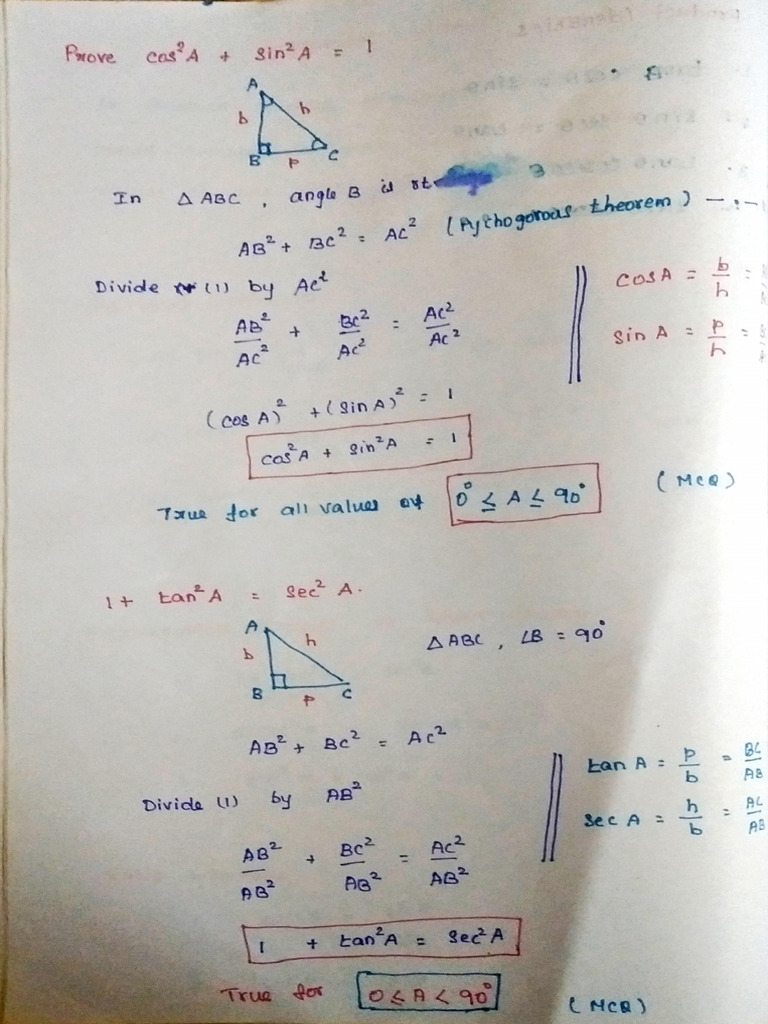 Prove cos²A + sin²A = 1
A
b h
B P C
In △ABC, angle B is rt
AB² + BC² = AC² (Pythogoroas theorem) -
Divide (1) by AC²
cosA = b/h =
AB²/AC² + BC²/AC² = AC²/AC²
sin A = P/h =
(cos A)² + (sin A)² = 1
cos²A + sin²A = 1
True for all values of 0° ≤ A ≤ 90° (MCQ)
1 + tan²A = sec² A.
A
b h
B P C
△ABC, ∠B = 90°
AB² + BC² = AC²
tan A = P/b = BC/AB
Divide (1) by AB²
sec A = h/b = AC/AB
AB²/AB² + BC²/AB² = AC²/AB²
1 + tan²A = sec²A
True for 0 ≤ A < 90° (MCQ)